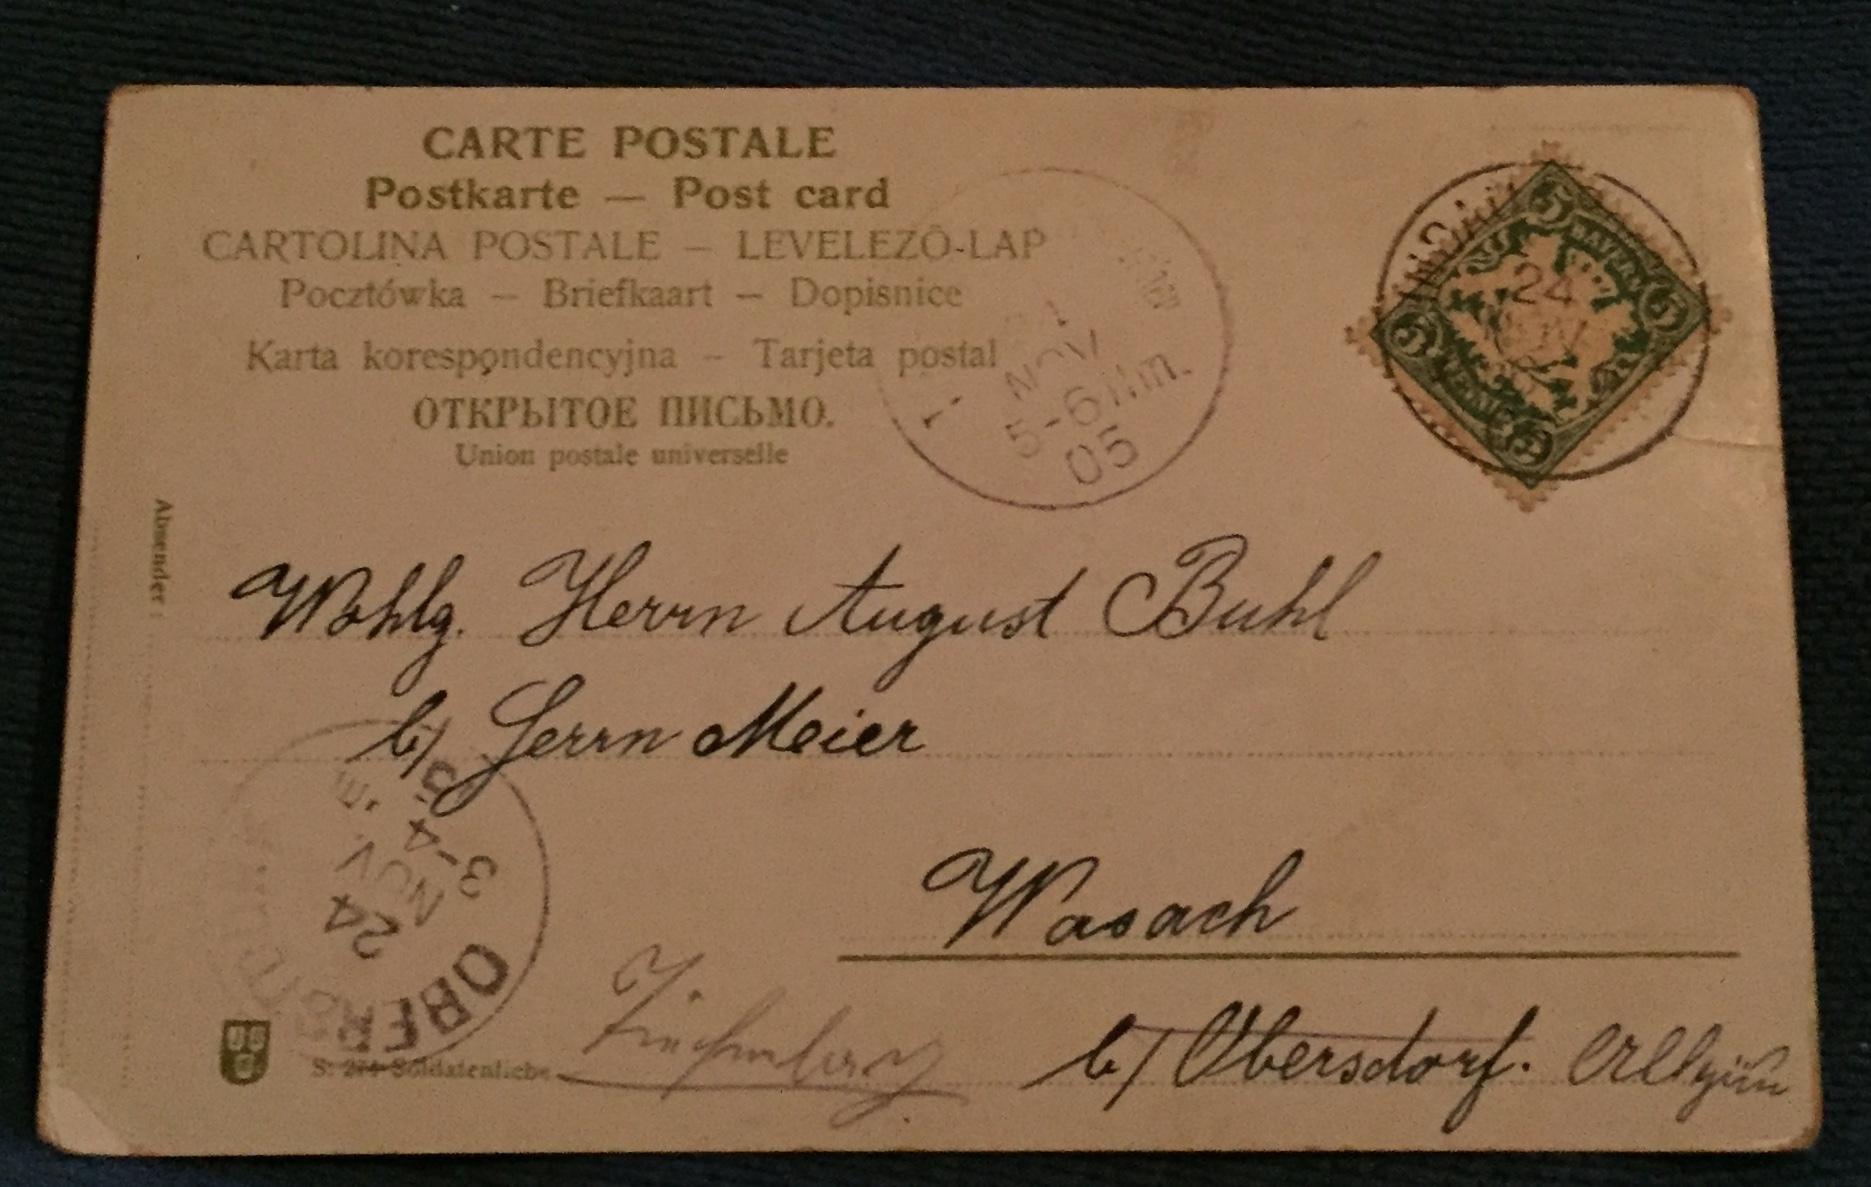 CARTE POSTALE
Postkarte — Post card
CARTOLINA POSTALE — LEVELEZŐ-LAP
Pocztówka — Briefkaart — Dopisnice
Karta korespondencyjna — Tarjeta postal
ОТКРЫТОЕ ПИСЬМО.
Union postale universelle
NOV
5-6 Nm.
05
5 BAYERN 5
5 5
24
NOV
Absender:
Wohlg. Herrn August Buhl
b/ Herrn Meier
Wasach
b/ Obersdorf.
OBERSDORF
24
NOV
3-4
S. 271 Soldatenliebe